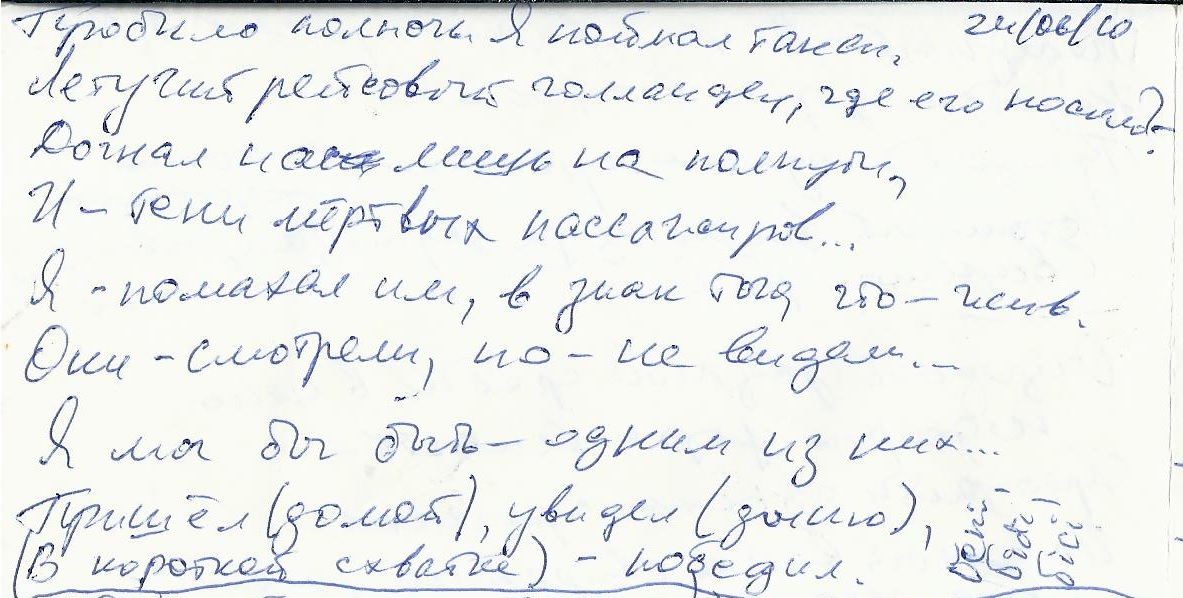 Пробило полночь. Я поймал такси. 24/06/10
Летучий рейсовый голландец, где его носило?
Догнал нас лишь на полпути,
И – тени мёртвых пассажиров...
Я – помахал им, в знак того, что – жив.
Они – смотрели, но – не видели...
Я мог бы быть – одним из них...
Пришёл (домой), увидел (дочию),
(В короткой схватке) – победил.
Veni!
Vidi!
Vici!